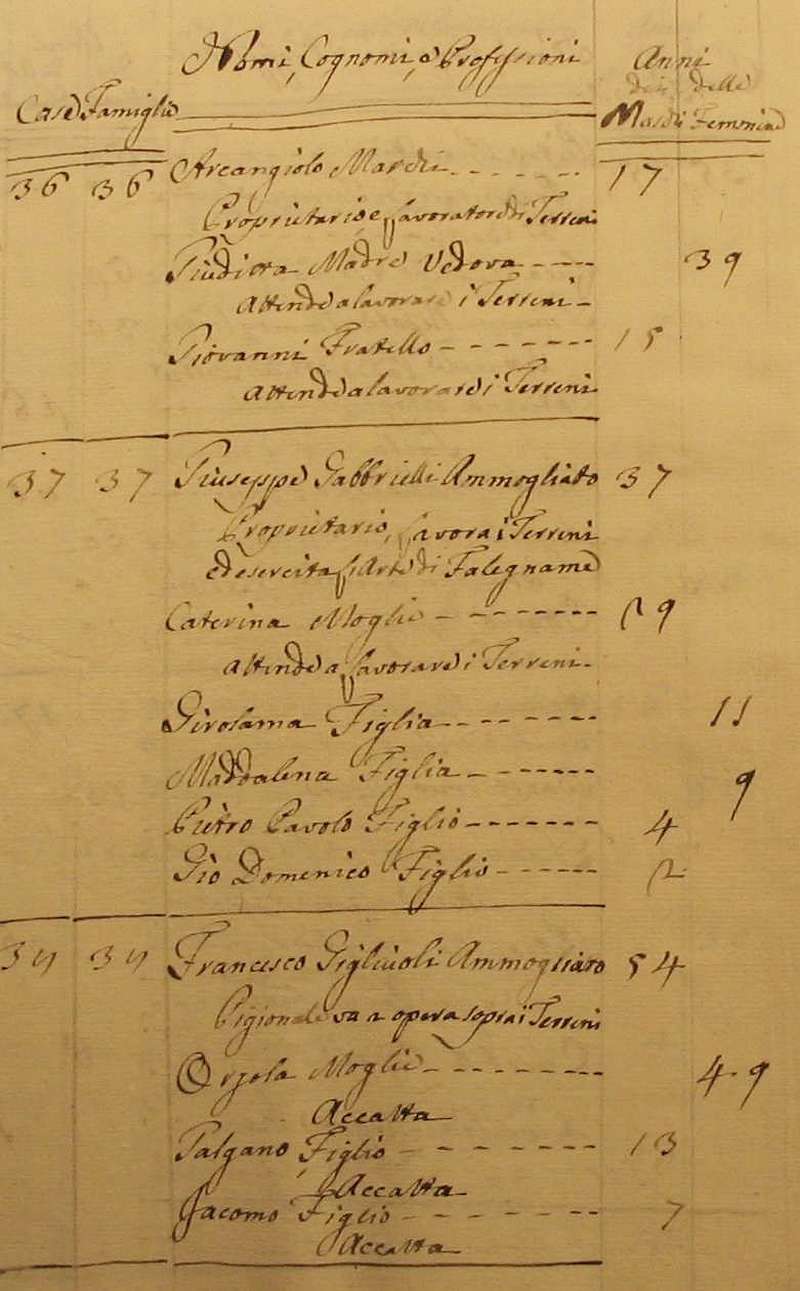 Nomi, Cognomi, e Professioni Anni
dei delle
Case Famiglie Maschi Femmine
36 36 Arcangiolo Mardi 17
Proprietario e lavoratore di Terreni
Giuditta Madre Vedova 39
Attende a lavorare i Terreni
Giovanni Fratello 15
Attende a lavorare i Terreni
37 37 Giuseppe Gabbrielli Ammogliato 37
Proprietario, lavora i Terreni
ed esercita l'Arte di Falegname
Caterina Moglie 29
Attende a lavorare i Terreni
Girolama Figlia 11
Maddalena Figlia 9
Pietro Pavolo Figlio 4
Gio Domenico Figlio 2
Francesco Gigliuoli Ammogliato 54
Pigionale va a opera sopra i Terreni
Orsola Moglie 49
Accatta
Galgano Figlio 13
Accatta
Jacomo Figlio 7
Accatta